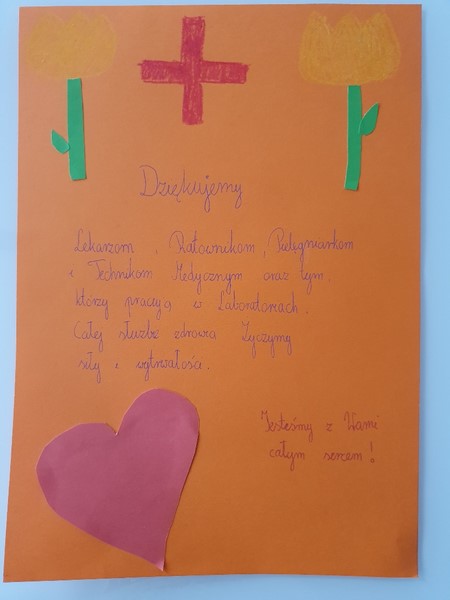 Dziękujemy
Lekarzom, Ratownikom, Pielęgniarkom
i Technikom Medycznym oraz tym,
którzy pracują w Laboratoriach.
Całej służbie zdrowia Życzymy
siły i wytrwałości.
Jesteśmy z Wami
całym sercem!